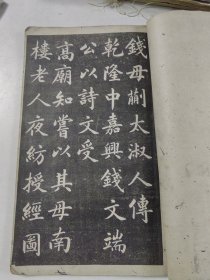 錢母蒯太淑人傳
乾隆中嘉興錢文端
公以詩文受
高廟知嘗以其母南
樓老人夜紡授經圖